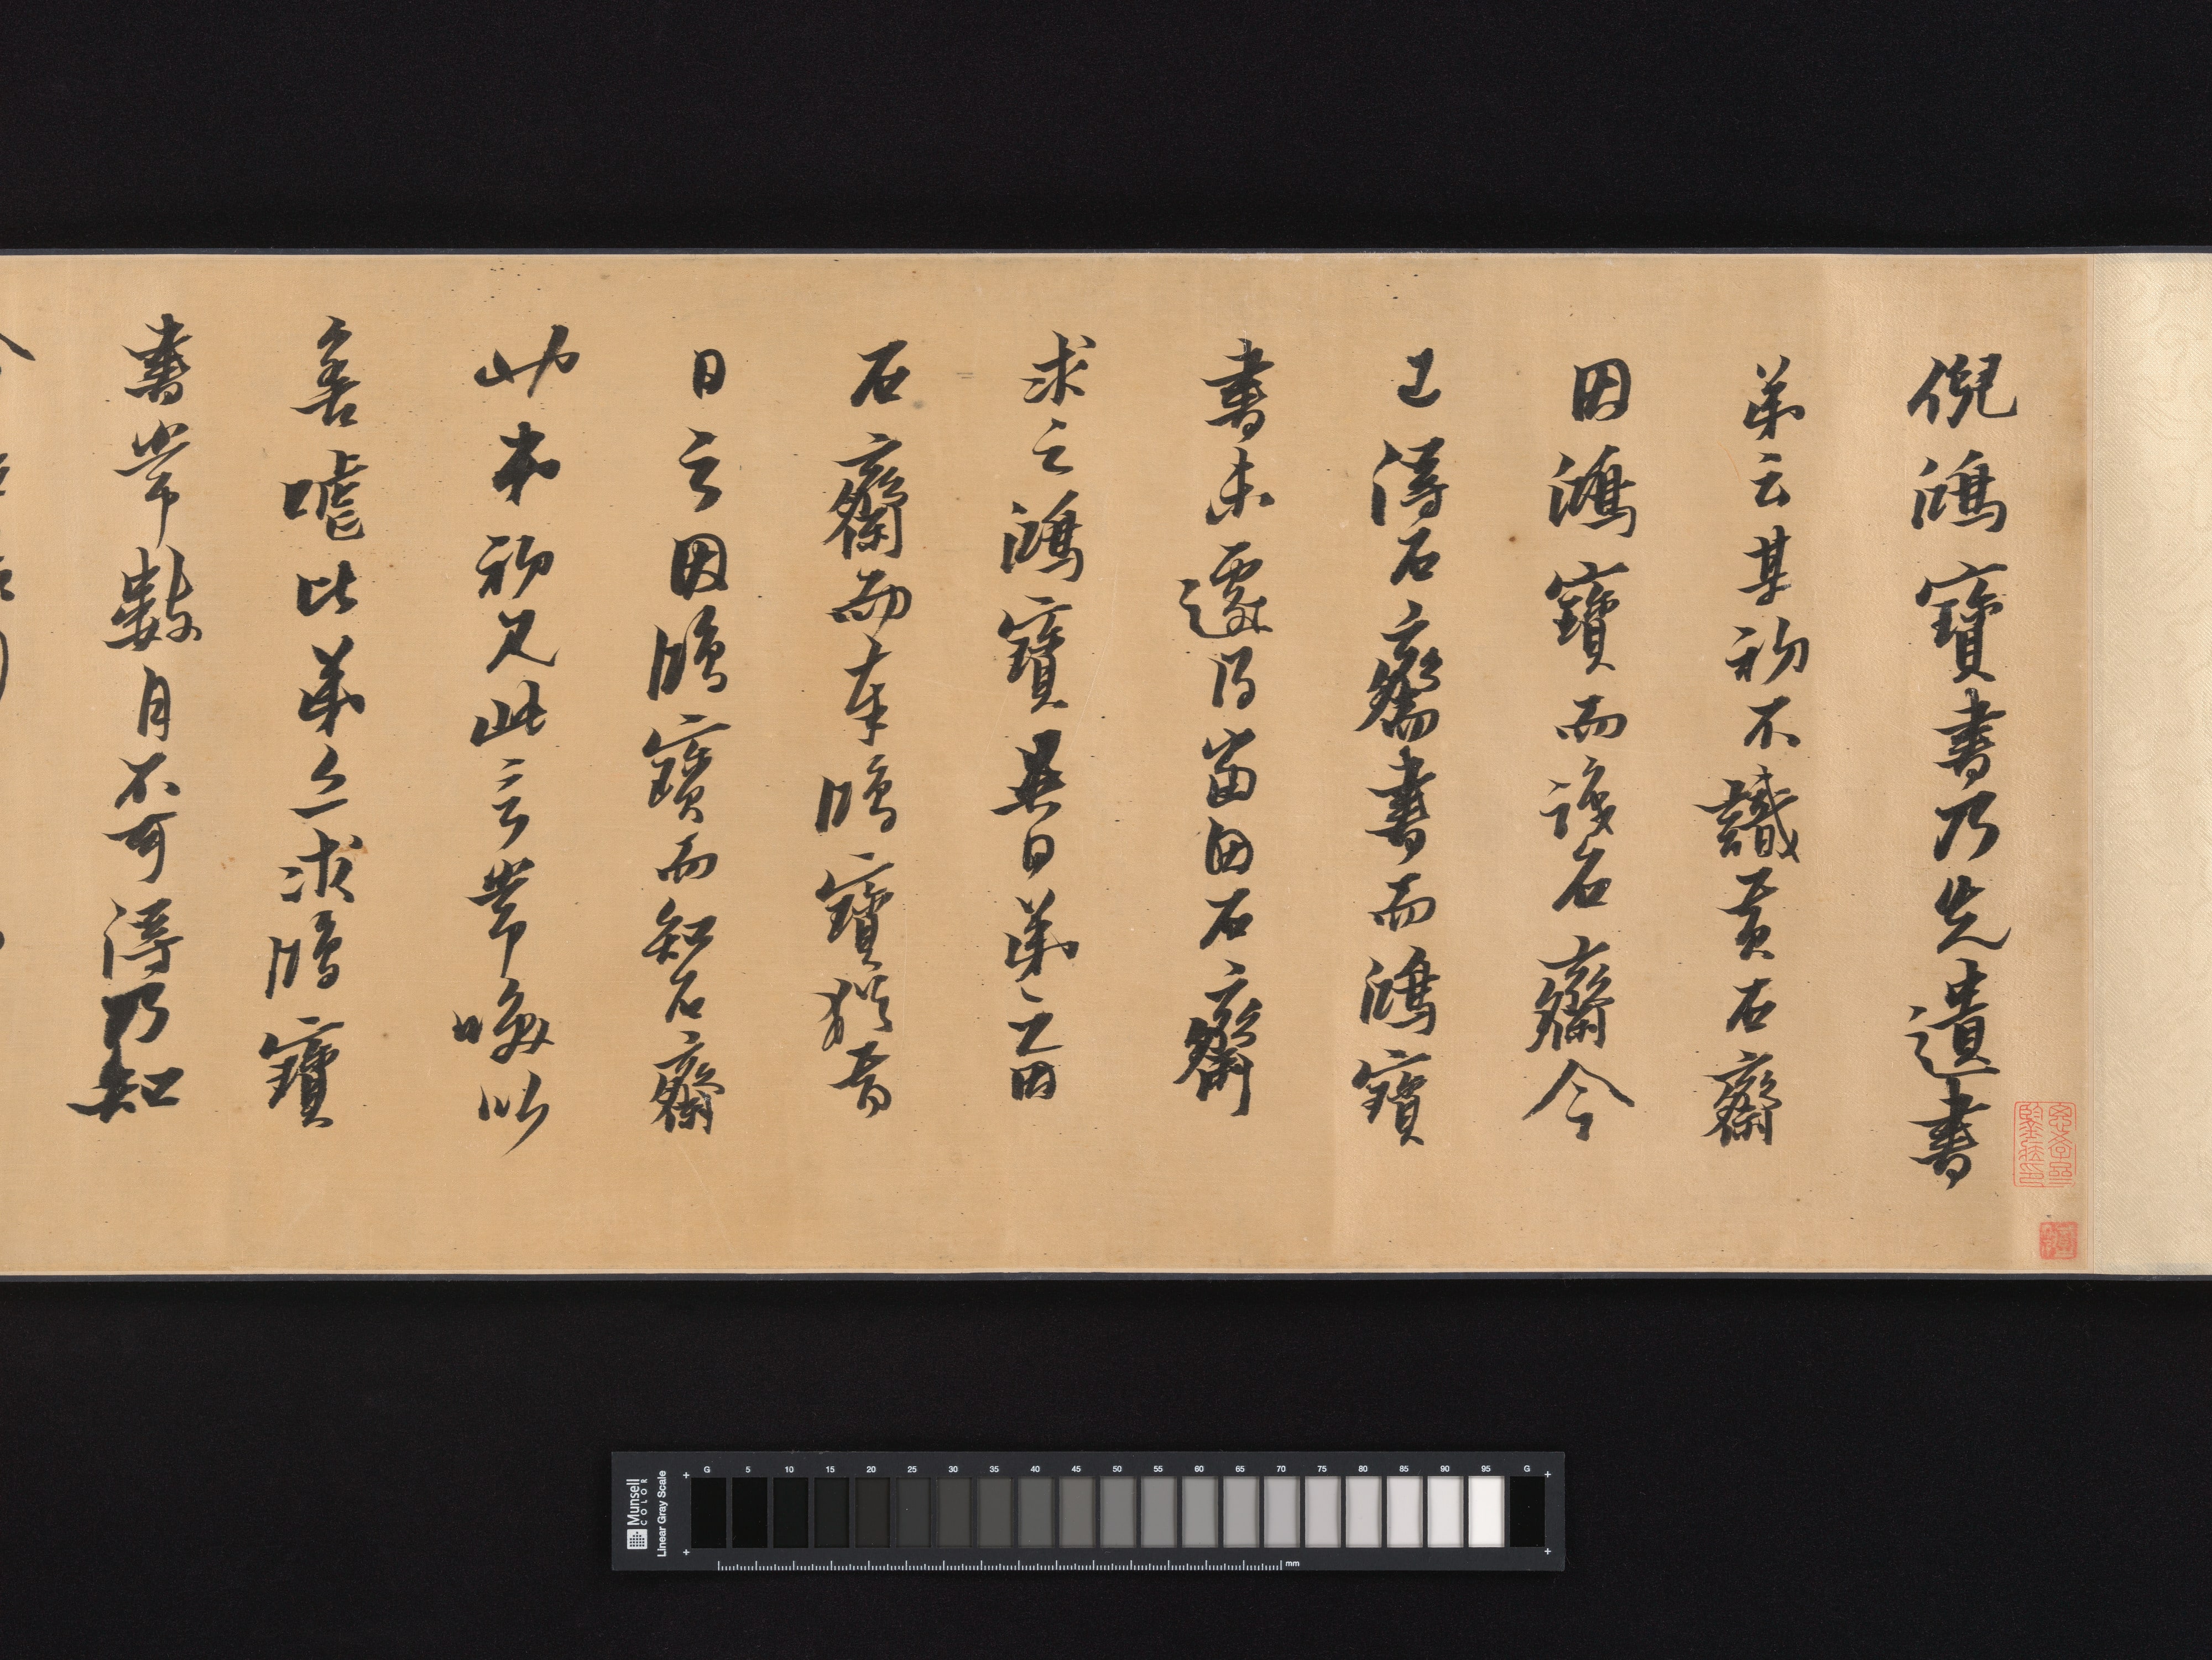 倪鴻寶書乃先遺書
弟云某初不識黃石齋
因鴻寶而石齋今
已得石齋書而鴻寶
書未遽得當由石齋
求之鴻寶異日弟之因
石齋而奉鴻寶猶昔
日之因鴻寶而知石齋
幼朱初見此言常以
善謔比弟亟求鴻寶
書常數月不可得乃知
Munsell COLOR
Linear Gray Scale
G 5 10 15 20 25 30 35 40 45 50 55 60 65 70 75 80 85 90 95 G
mm